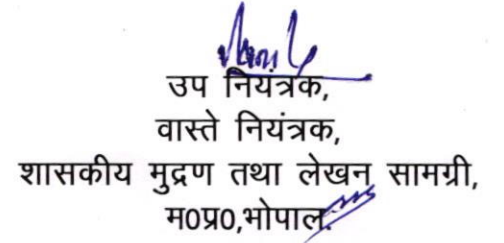 उप नियंत्रक,
वास्ते नियंत्रक,
शासकीय मुद्रण तथा लेखन सामग्री,
म0प्र0,भोपाल.